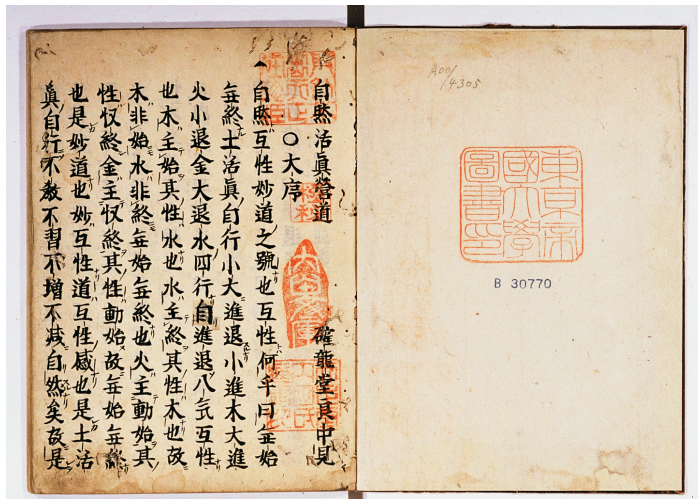 A00/
14305
東京帝
國大學
圖書印
B 30770
自然活眞營道　確龍堂良中見
○大序
自然互性妙道之號也互性何乎曰無始
無終土活眞自行小大進退小進木大進
火小退金大退水四行自進退八氣互性
也木主始其性水也水主終其性木也故
木非始水非終無始無終也火主動始其
性収終金主収終其性動始故無始無終
也是妙道也妙互性道互性感也是土活
眞自行不教不習不增不減自然矣故是